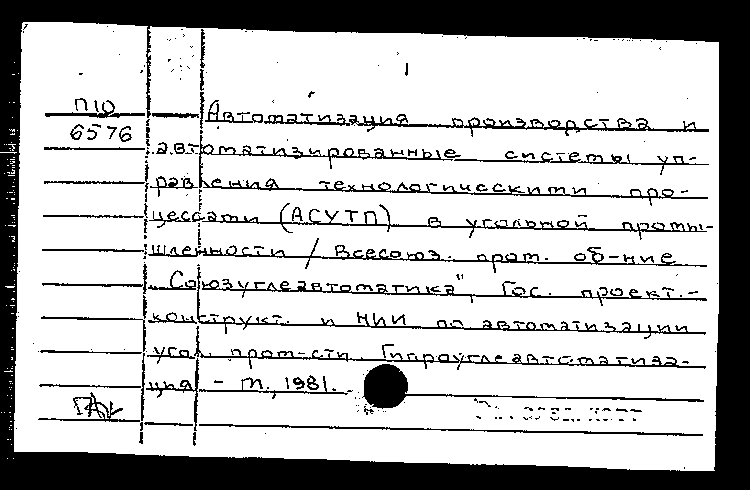 1
П10
6576
Автоматизация производства и
автоматизированные системы уп-
равления технологическими про-
цессами (АСУТП) в угольной промы-
шленности / Всесоюз. пром. об-ние
"Союзуглеавтоматика", Гос. проект.-
конструкт. и НИИ по автоматизации
угол. пром-сти Гипроуглеавтоматиза-
ция - М., 1981.